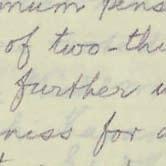 mum pens
of two-thi
further
ness for a